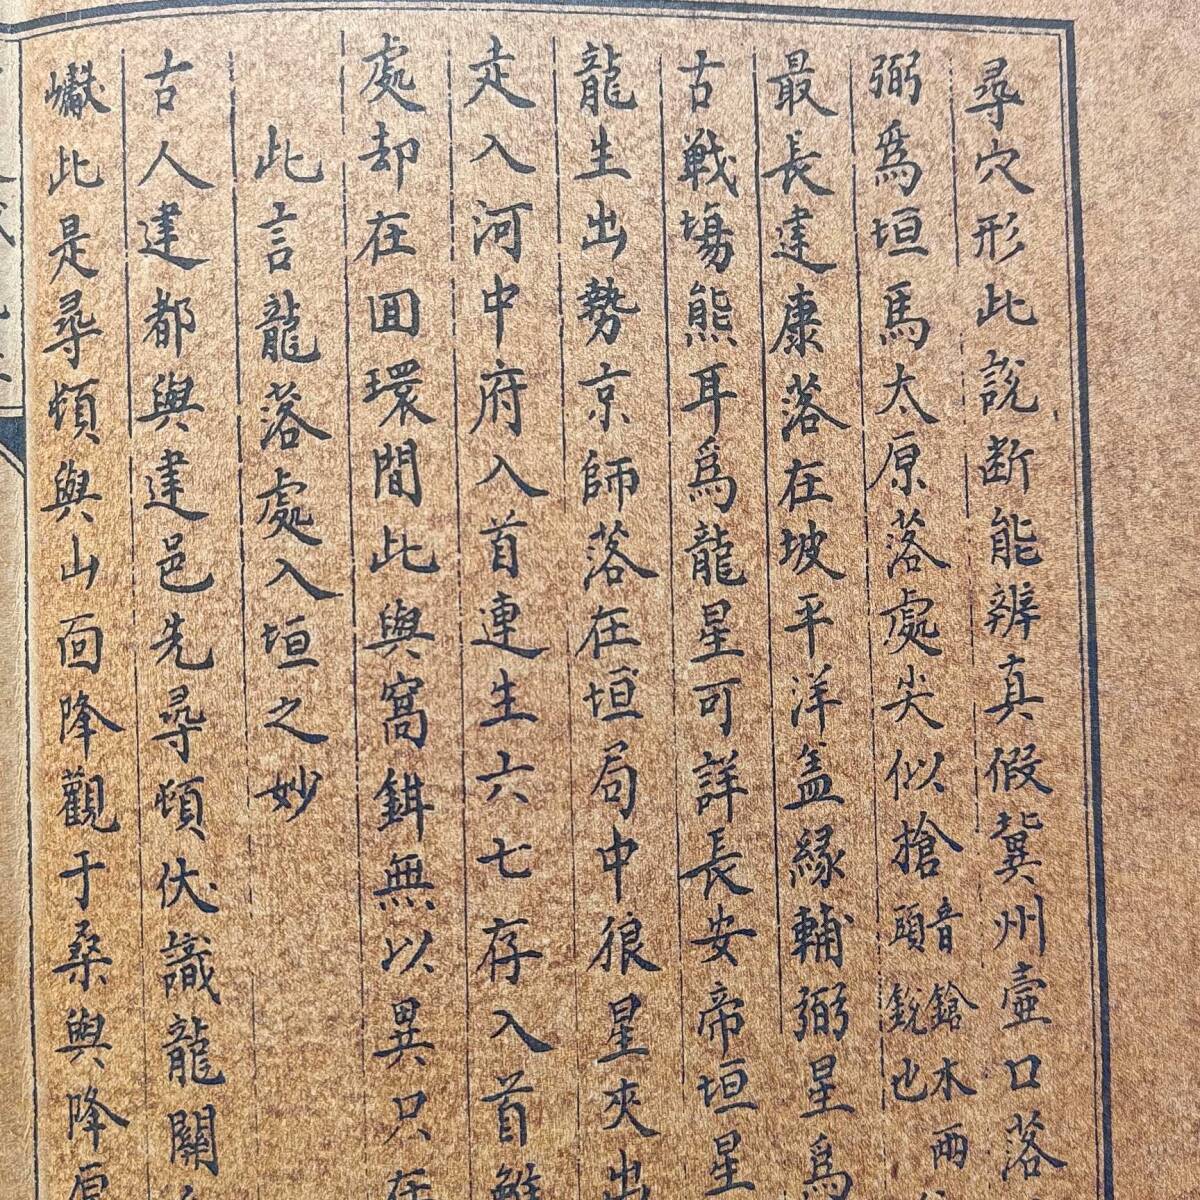 尋穴形此說断能辨真假兾州壷口落
弼爲垣馬太原落處尖似搶音鎗木兩頭銳也
最長建康落在坡平洋盖緣輔弼星爲
古戰塲熊耳爲龍星可詳長安帝垣星
龍生出勢京師落在垣局中狼星夾出
走入河中府入首連生六七存入首
處却在囬環間此與窩鉗無以異只在
此言龍落處入垣之妙
古人建都與建邑先尋頓伏識龍關
巘此是尋頓與山面降觀于桑與降原